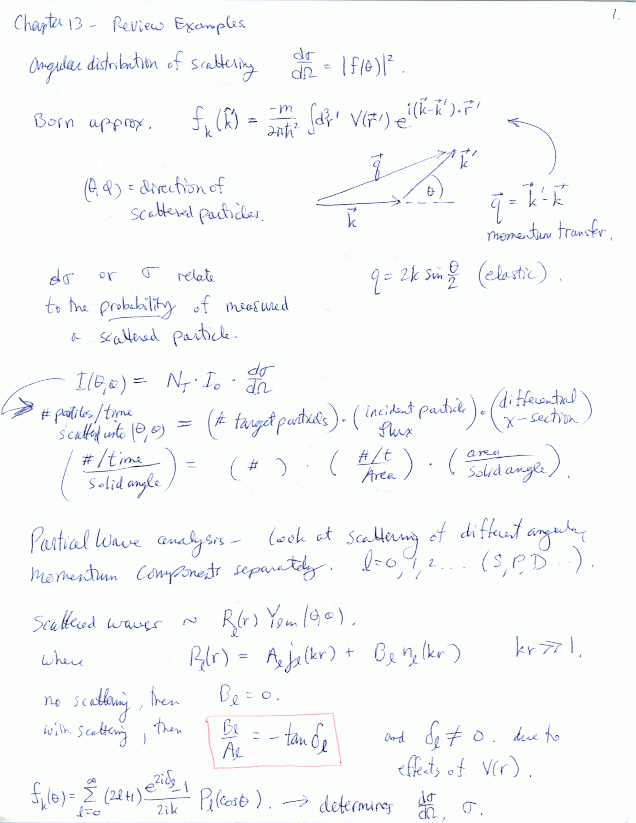 1.
Chapter 13 - Review Examples
Angular distribution of scattering dσ/dΩ = |f(θ)|².
Born approx. f_k(k̂') = -m/2πħ² ∫d³r' V(r⃗') e^{i(k⃗-k⃗')·r⃗'}
q⃗ k⃗'
(θ,φ) = direction of θ
scattered particles. k⃗ q⃗ = k⃗'-k⃗
momentum transfer.
q = 2k sin θ/2 (elastic).
dσ or σ relate
to the probability of measured
a scattered particle.
I(θ,φ) = N_T · I_0 · dσ/dΩ
# particles/time
scatted into (θ,φ) = (# target particles) · (incident particle flux) · (differential x-section)
(#/time / solid angle) = (#) · (#/t / Area) · (area / solid angle).
Partial Wave analysis - Look at scattering of different angular
momentum components separately. l=0,1,2... (S,P,D...).
Scattered waves ~ R_l(r) Y_lm(θ,φ).
where R_l(r) = A_l j_l(kr) + B_l η_l(kr) kr ≫ 1.
no scattering, then B_l = 0.
with scattering, then B_l/A_l = -tan δ_l and δ_l ≠ 0. due to
effects of V(r).
f_k(θ) = ∑_{l=0}^{∞} (2l+1) e^{2iδ_l}-1 / 2ik P_l(cosθ). → determines dσ/dΩ, σ.